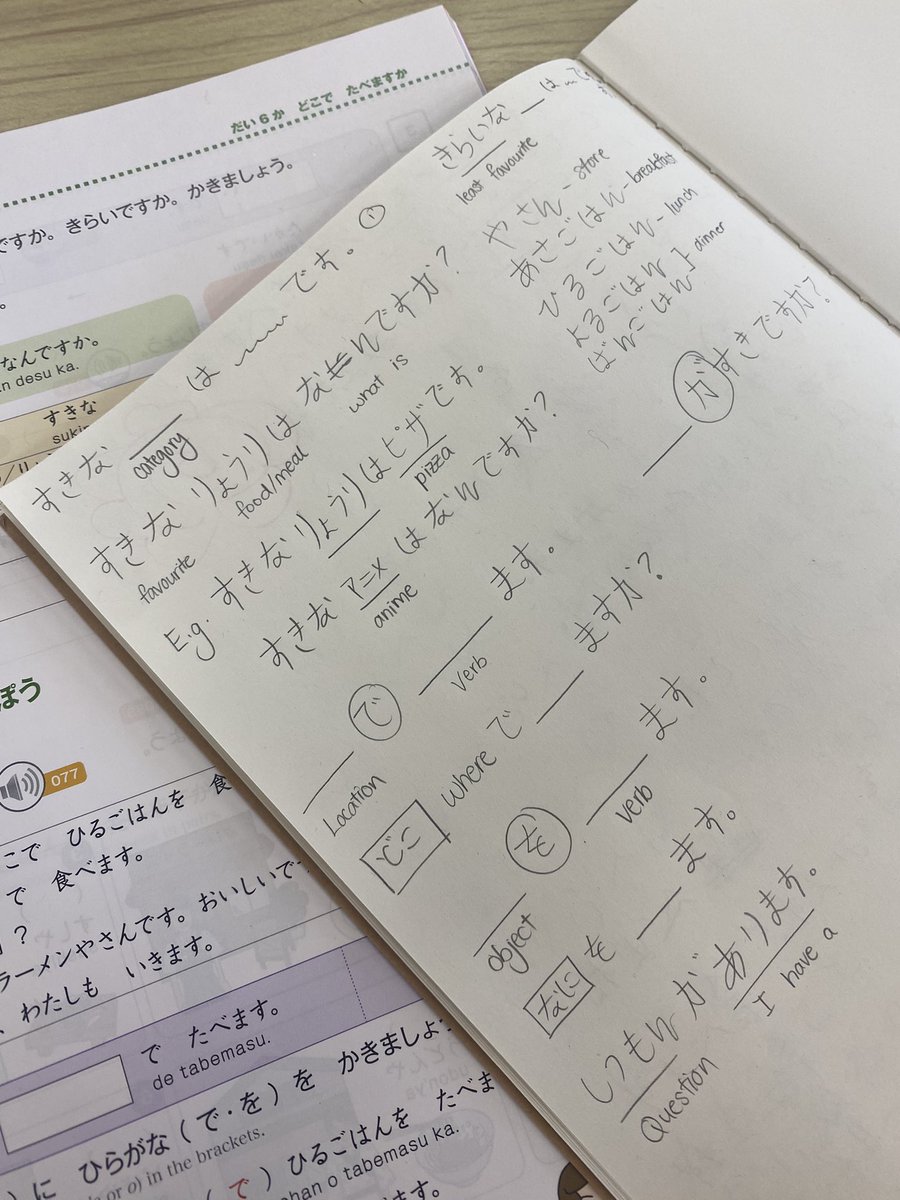 だい6か どこで たべますか
ですか。きらいですか。かきましょう。
なんですか。
n desu ka.
すきな
suki
ぽう
077
こで ひるごはんを 食
で 食べます。
?
ラーメンやさんです。おいしいで
、わたしも いきます。
で たべます。
de tabemasu.
に ひらがな(で・を)を かきましょ
or o) in the brackets.
(で)ひるごはんを たべま
ohan o tabemasu ka.
すきな ___ は 〰 です。①
category
すきなりょうりは なんですか?
favourite food/meal what is
E.g. すきなりょうりはピザです。
pizza
すきなアニメはなんですか?
anime
___ で ___ ます。
Location verb
どこ where で ___ ますか?
___ を ___ ます。
object verb
なに を ___ ます。
しつもんがあります。
Question I have a
きらいな ___ は 〰 で
least favourite
やさん - store
あさごはん - breakfast
ひるごはん - lunch
よるごはん ] dinner
ばんごはん
___ が すきですか?